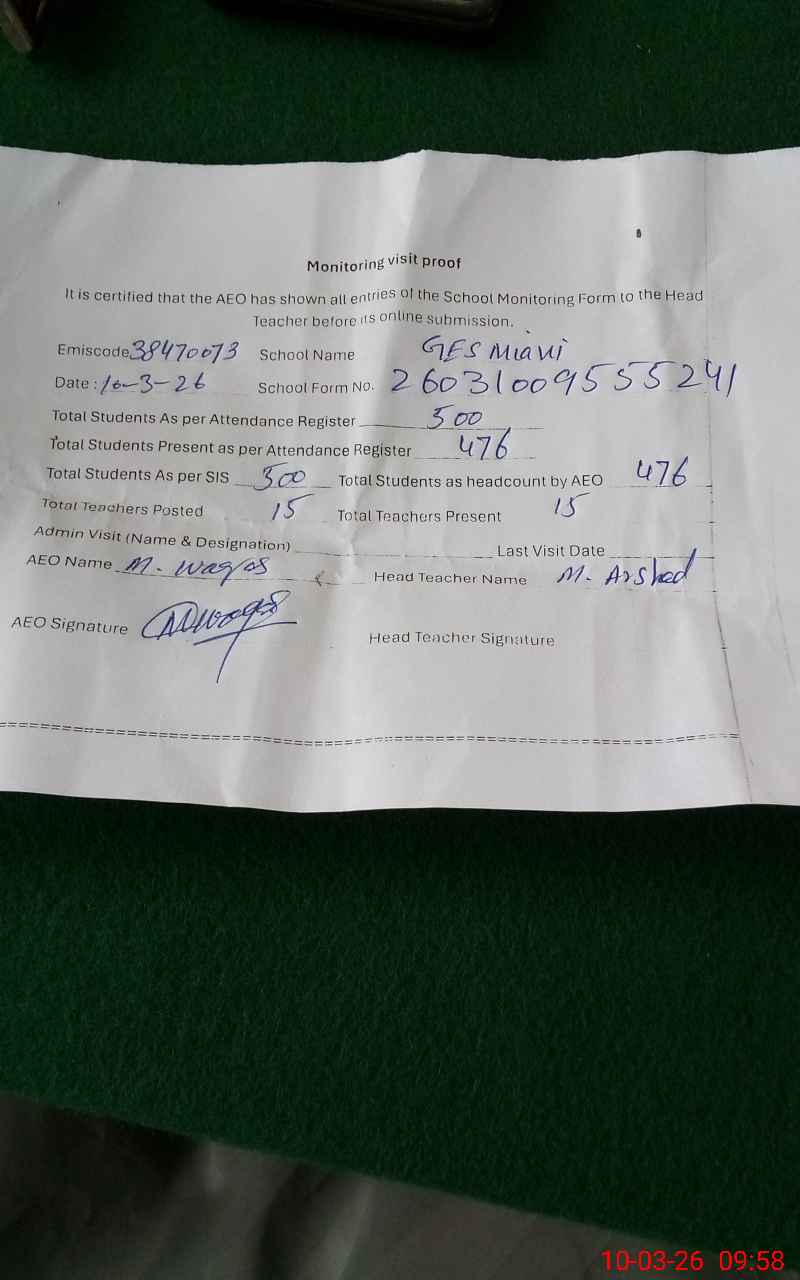 Monitoring visit proof
It is certified that the AEO has shown all entries of the School Monitoring Form to the Head
Teacher before its online submission.
Emiscode 38470073 School Name GES Miani
Date : 10-3-26 School Form No. 260310095555241
Total Students As per Attendance Register 500
Total Students Present as per Attendance Register 476
Total Students As per SIS 500 Total Students as headcount by AEO 476
Total Teachers Posted 15 Total Teachers Present 15
Admin Visit (Name & Designation) Last Visit Date
AEO Name M. Waqas Head Teacher Name M. Arshad
AEO Signature MWaqas Head Teacher Signature
10-03-26 09:58